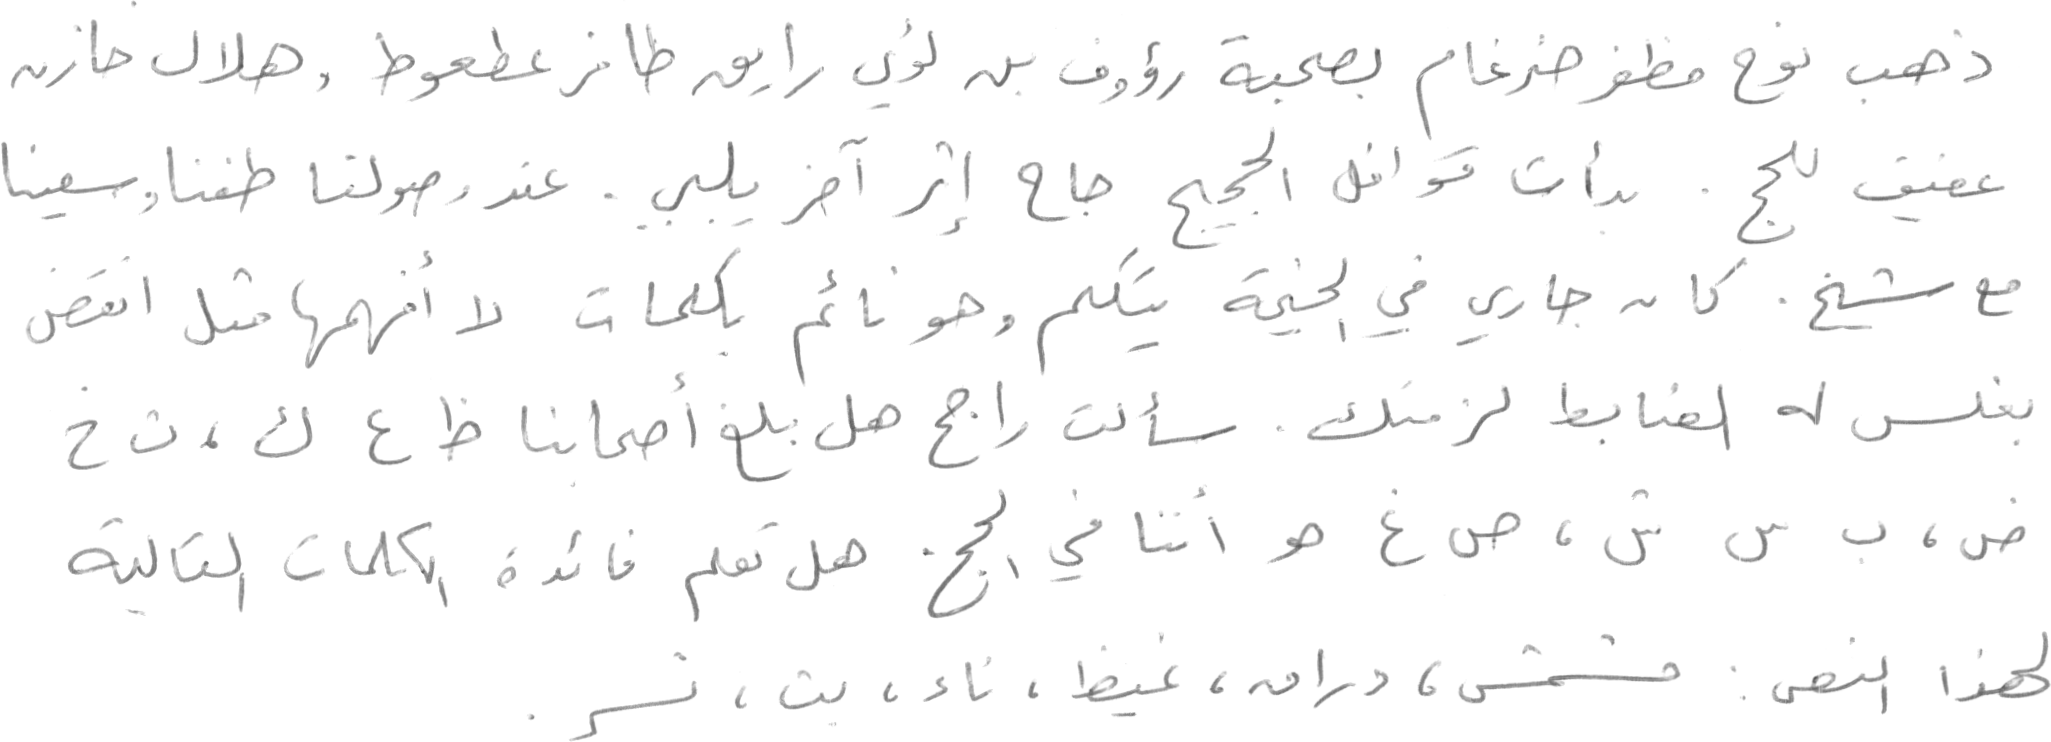 ذهب نوح مظفر ضرغام بصحبة رؤوف بن لؤي رايق ظافر عطعوط ، وهلال خازن
عفيف للحج . بدأت قوافل الحجيج حاج إثر آخر يلبي . عند وصولنا طفنا وسعينا
مع شيخ . كان جاري في الخيمة يتكلم وهو نائم بكلمات لا أفهمها مثل انقض
بغلس له الضابط لزمتك . سألت راجح هل بلغ أصحابنا ظ ع ك ، ث خ
ض ، ب س ش ، ص غ هو أننا في الحج . هل تعلم فائدة الكلمات التالية
لهذا النص : مشمش ، دراق ، غيظ ، ناء ، بت ، نسر .